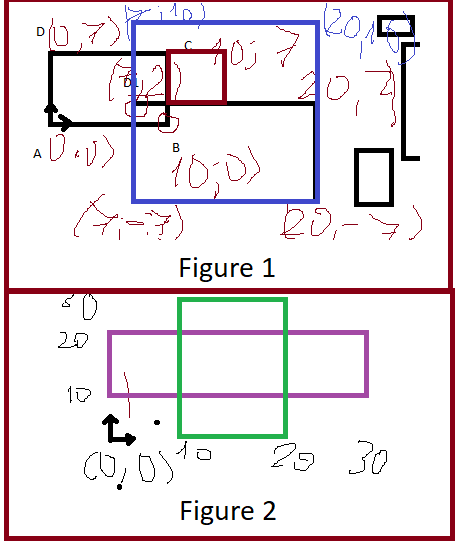 D (0,7) (7,10) (20,10)
C 10; 7
(7,2) 20,7
A 0.0) B
10;0)
(7,-7) (20,-7)
Figure 1
20
10
(0,0) 10 20 30
Figure 2